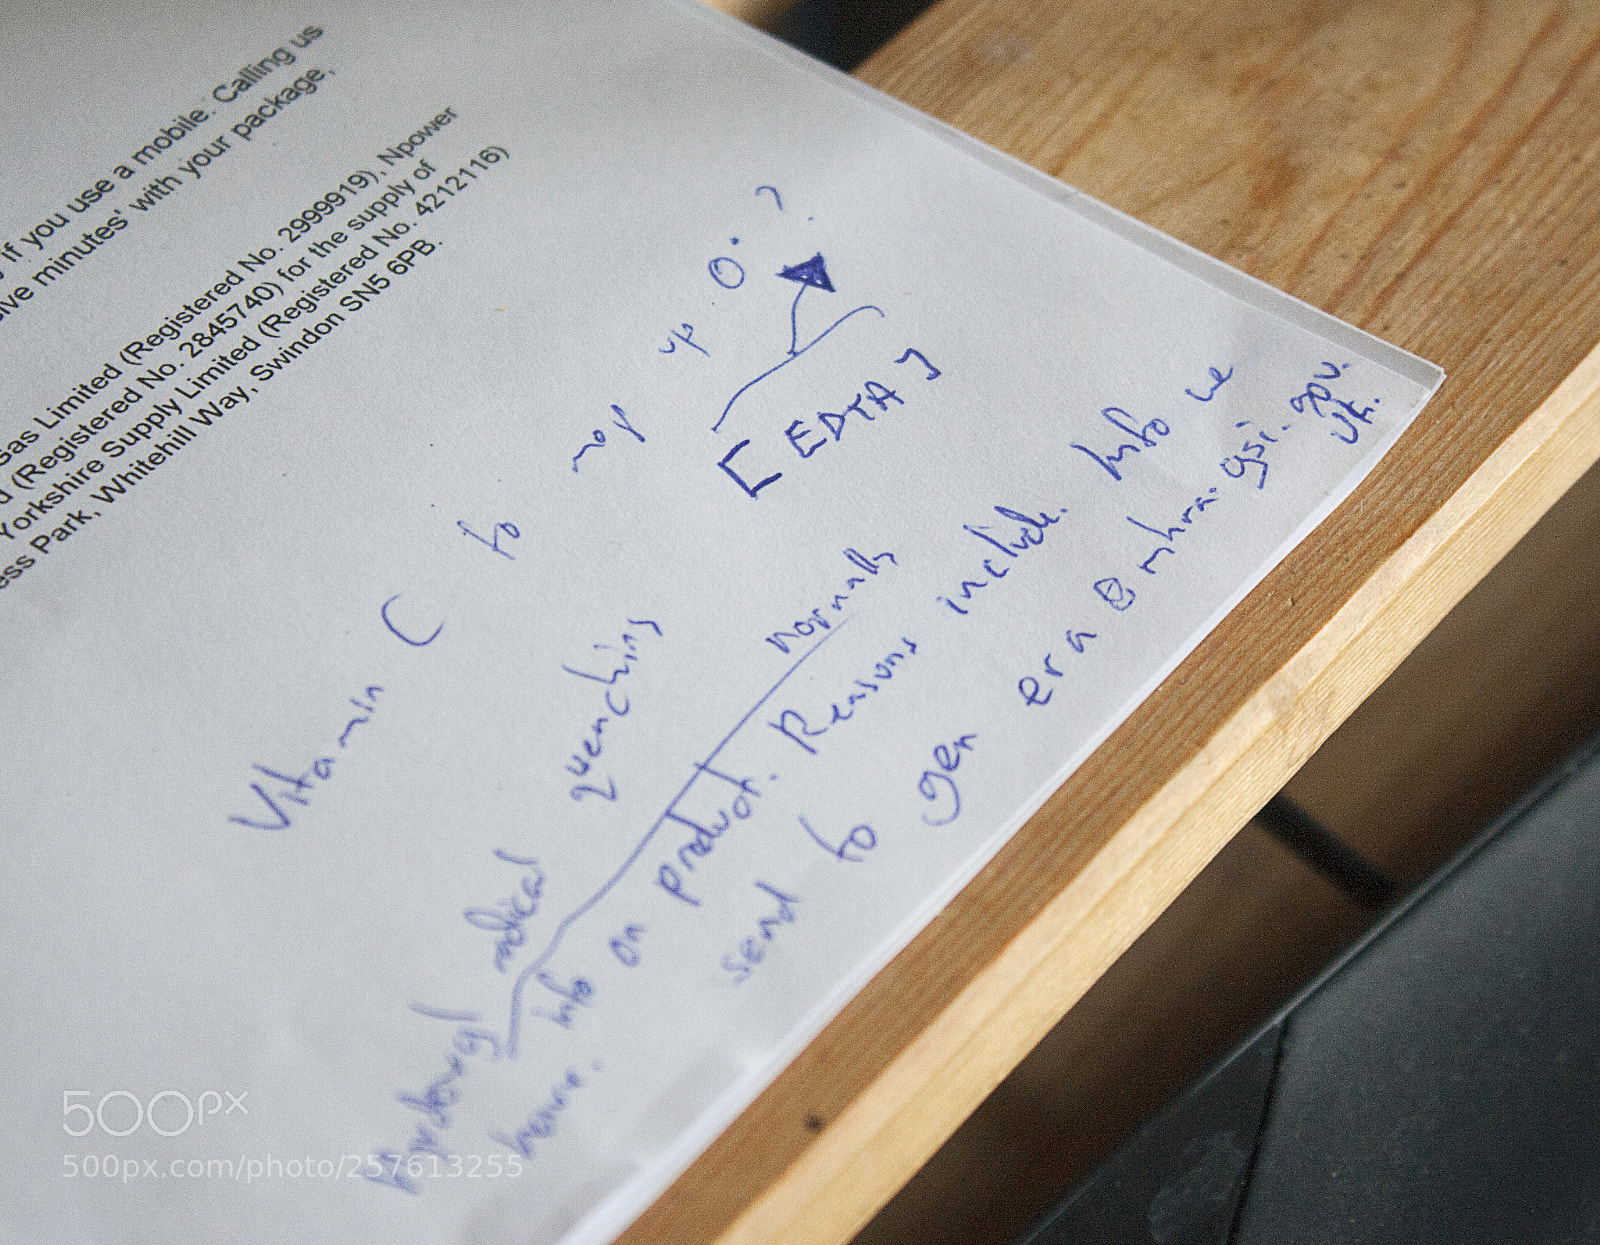 if you use a mobile. Calling us
five minutes' with your package,
Gas Limited (Registered No. 2999919), Npower
d (Registered No. 2845740) for the supply of
Yorkshire Supply Limited (Registered No. 4212116)
ess Park, Whitehill Way, Swindon SN5 6PB.
Vitamin C to mop up O· ?
[EDTA]
Hydroxyl radical quenching
normally
have. Info on product. Reasons include. Info we
send to gen era @ mhra.gsi.gov.
uk.
500px
500px.com/photo/257613255